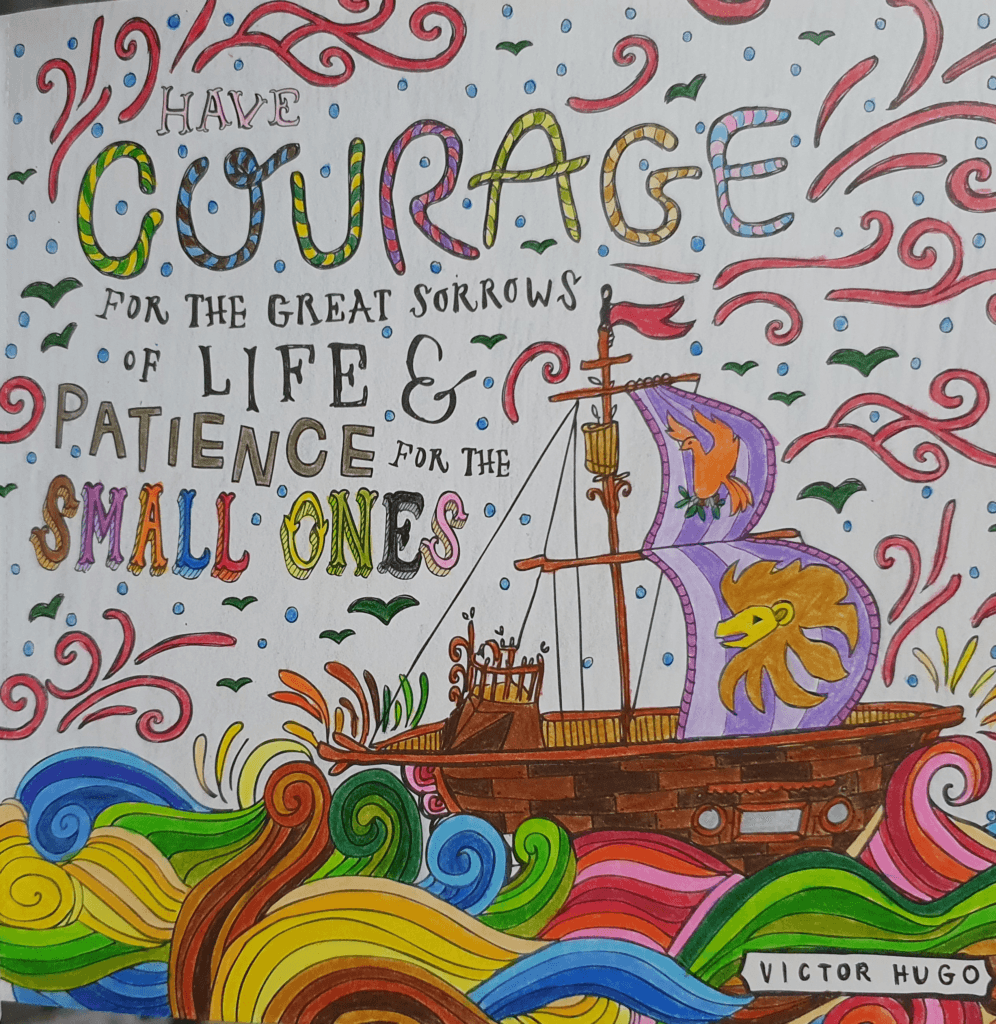 HAVE
COURAGE
FOR THE GREAT SORROWS
OF LIFE &
PATIENCE FOR THE
SMALL ONES
VICTOR HUGO